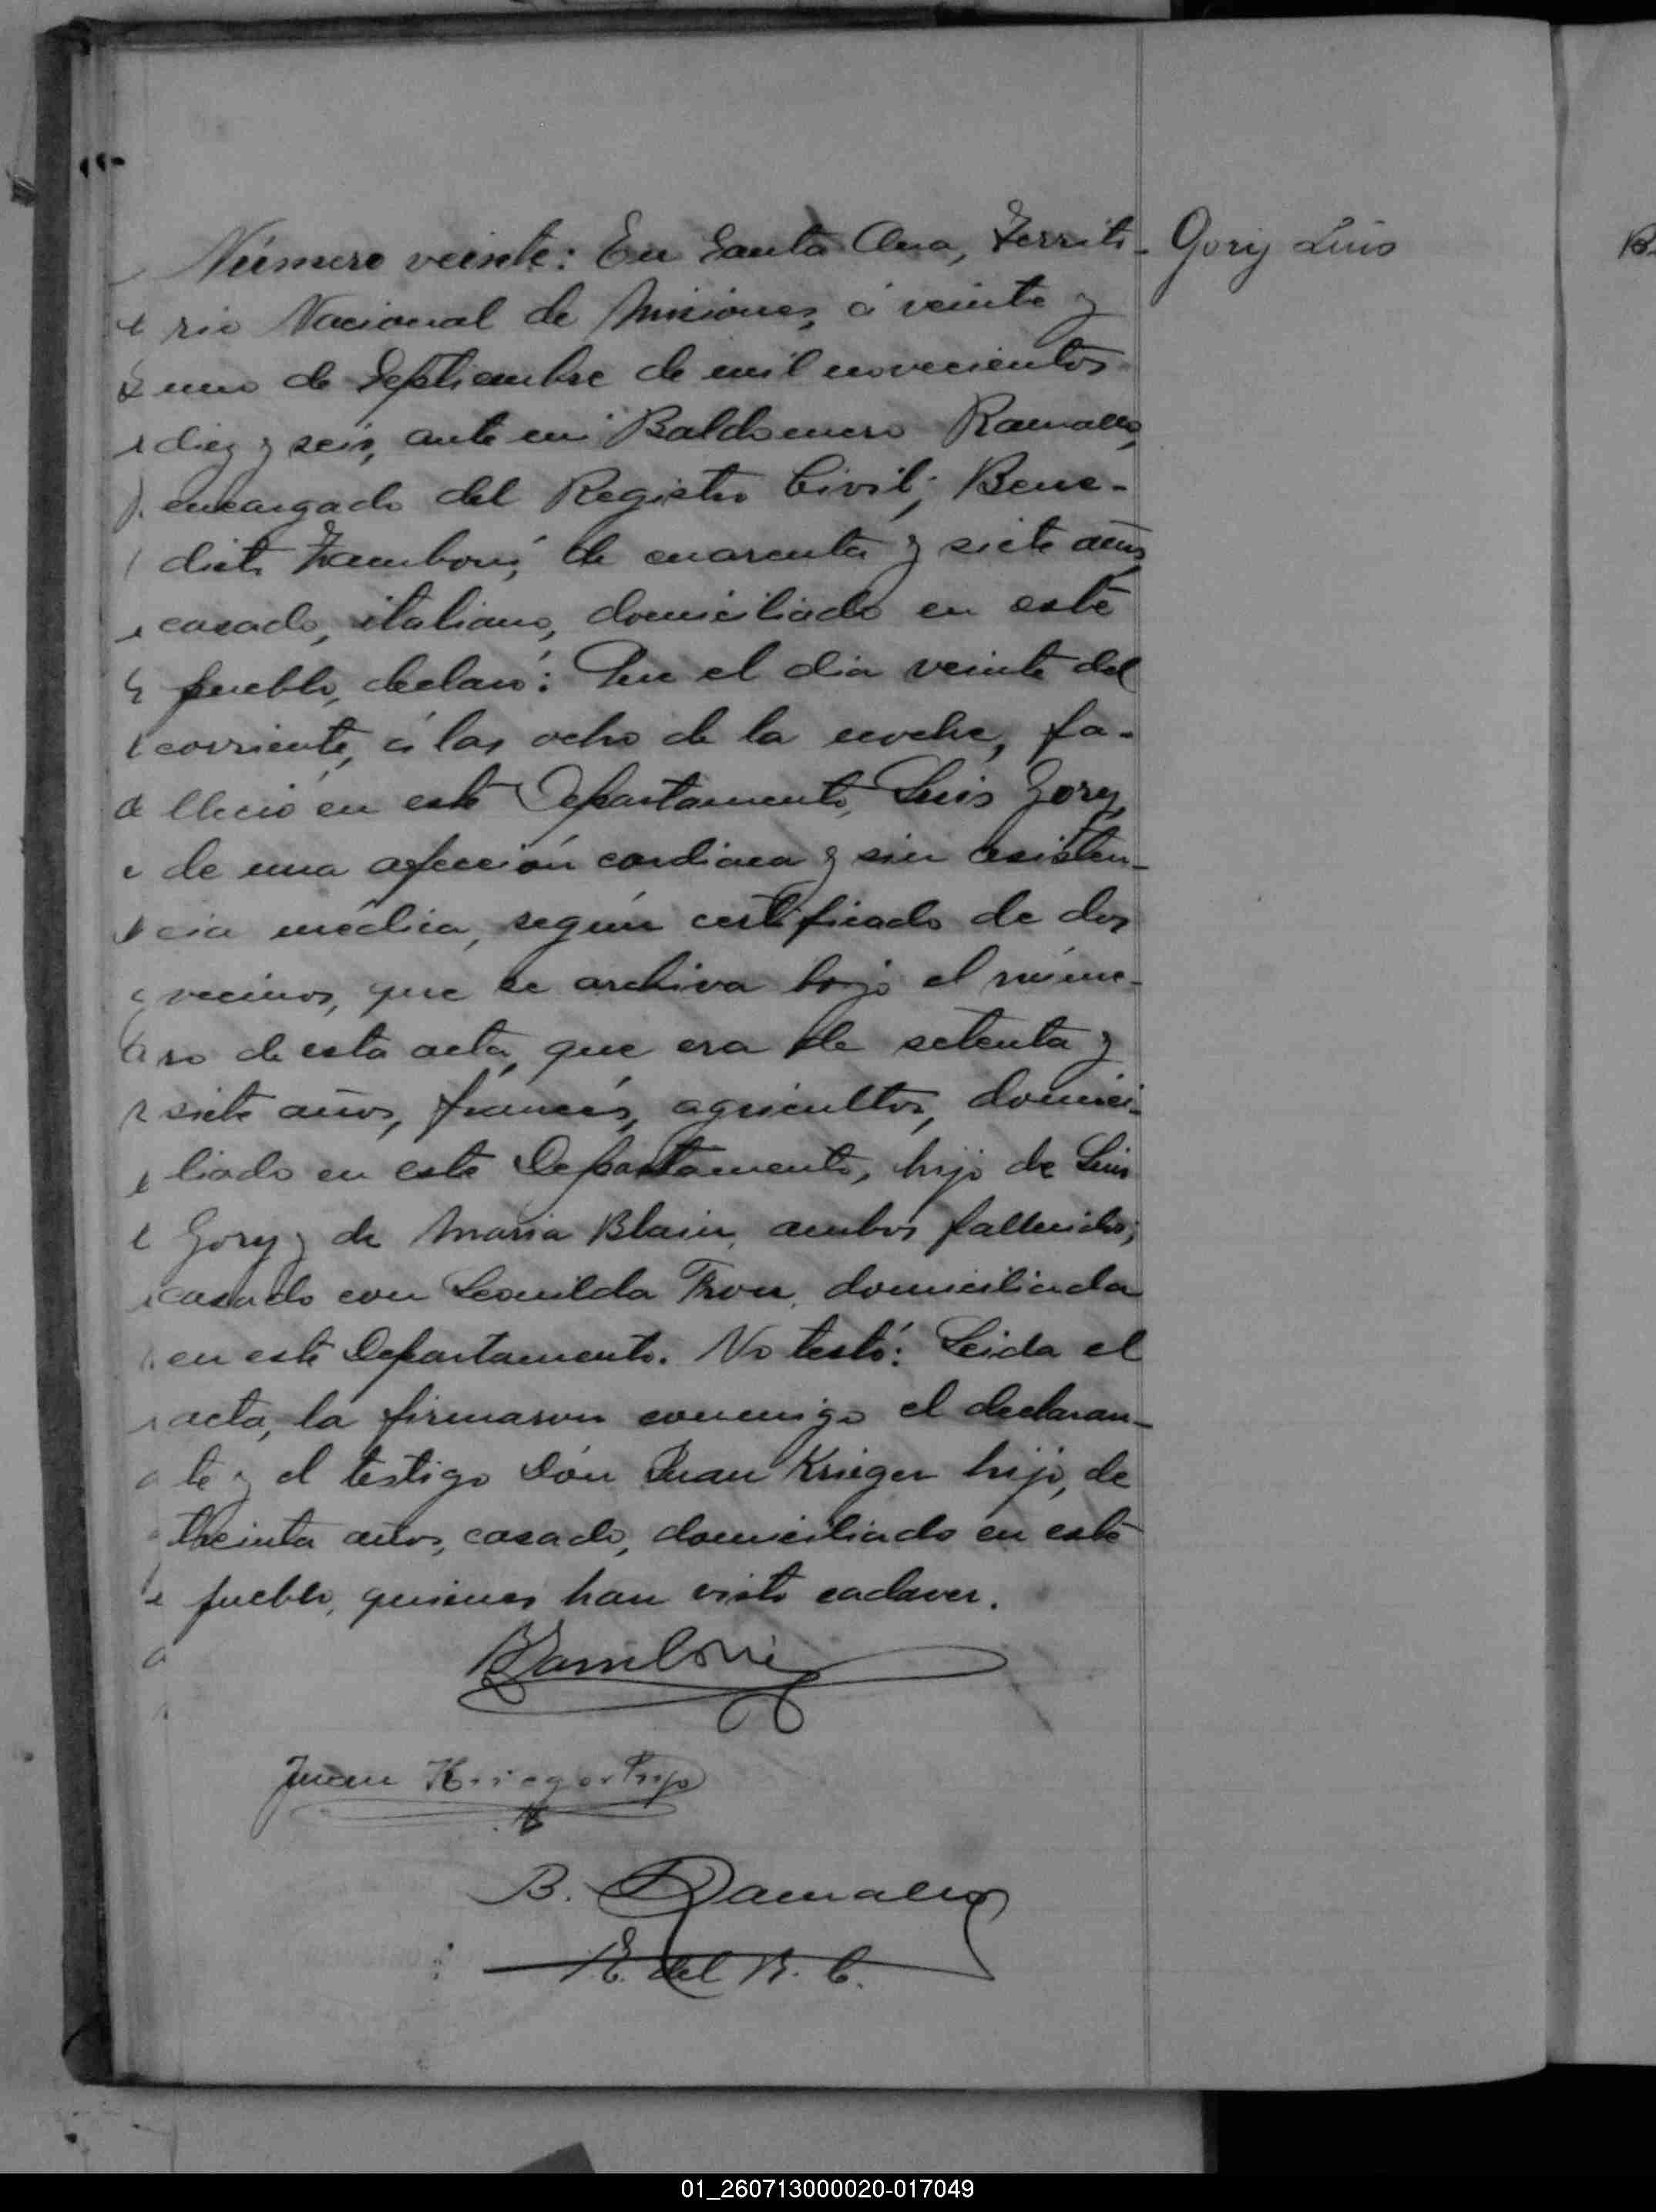 Número veinte: En Santa Ana, Territo- Gory Luis
rio Nacional de Misiones, á veinte y
uno de Septiembre de mil novecientos
diez y seis, ante mi Baldomero Ramallo,
encargado del Registro Civil; Bene-
dicto Zamboni, de cuarenta y siete años
casado, italiano, domiciliado en este
pueblo, declaró: Que el dia veinte del
corriente, á las ocho de la noche, fa-
lleció en este Departamento, Luis Gory,
de una afección cardiaca y sin asisten-
cia médica, según certificado de dos
vecinos, que se archiva bajo el núme-
ro de esta acta, que era de setenta y
siete años, francés, agricultor, domici-
liado en este Departamento, hijo de Luis
Gory y de Maria Blain, ambos fallecidos;
casado con Leonilda Tron, domiciliada
en este Departamento. No testó: Leida el
acta, la firmaron conmigo el declaran-
te y el testigo Dón Juan Krieger hijo, de
treinta años, casado, domiciliado en este
pueblo, quienes han visto cadaver.
BZamboni
Juan Krieger hijo
B. Ramallo
E. del R. C.
01_260713000020-017049